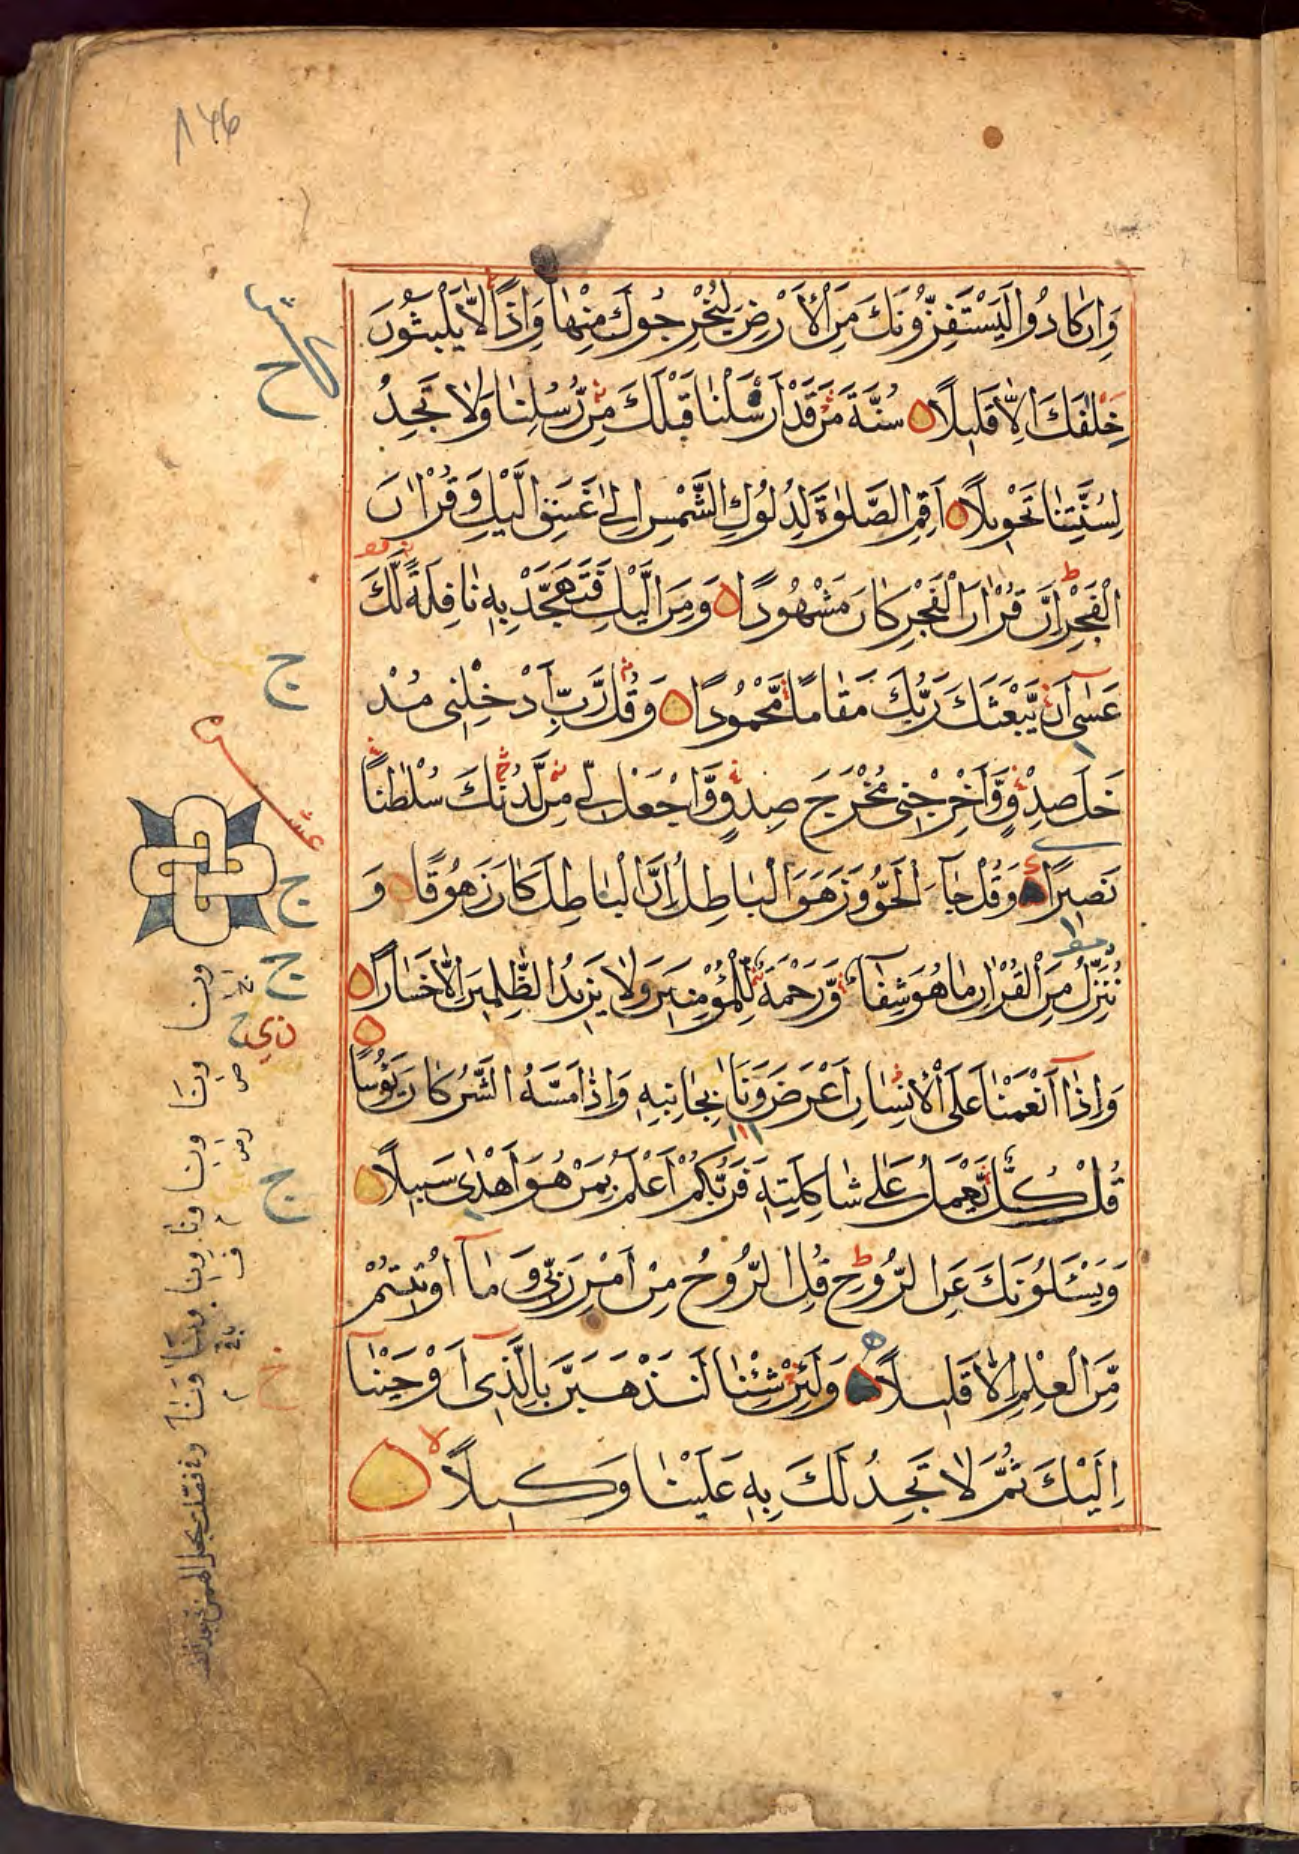 ١٤٦
وَاِنْ كَادُوا لَيَسْتَفِزُّونَكَ مِنَ الْاَرْضِ لِيُخْرِجُوكَ مِنْهَا وَاِذًا لَّا يَلْبَثُونَ
خِلٰفَكَ اِلَّا قَلِيلًا سُنَّةَ مَنْ قَدْ اَرْسَلْنَا قَبْلَكَ مِنْ رُّسُلِنَا وَلَا تَجِدُ
لِسُنَّتِنَا تَحْوِيلًا اَقِمِ الصَّلٰوةَ لِدُلُوكِ الشَّمْسِ اِلٰى غَسَقِ الَّيْلِ وَقُرْاٰنَ
الْفَجْرِ اِنَّ قُرْاٰنَ الْفَجْرِ كَانَ مَشْهُودًا وَمِنَ الَّيْلِ فَتَهَجَّدْ بِهٖ نَافِلَةً لَّكَ
عَسٰٓى اَنْ يَّبْعَثَكَ رَبُّكَ مَقَامًا مَّحْمُودًا وَقُلْ رَّبِّ اَدْخِلْنِى مُدْ
خَلَ صِدْقٍ وَّاَخْرِجْنِى مُخْرَجَ صِدْقٍ وَّاجْعَلْ لِّى مِنْ لَّدُنْكَ سُلْطٰنًا
نَصِيرًا وَقُلْ جَآءَ الْحَقُّ وَزَهَقَ الْبَاطِلُ اِنَّ الْبَاطِلَ كَانَ زَهُوقًا وَ
نُنَزِّلُ مِنَ الْقُرْاٰنِ مَا هُوَ شِفَآءٌ وَّرَحْمَةٌ لِّلْمُؤْمِنِينَ وَلَا يَزِيدُ الظّٰلِمِينَ اِلَّا خَسَارًا
وَاِذَآ اَنْعَمْنَا عَلَى الْاِنْسَانِ اَعْرَضَ وَنَاٰ بِجَانِبِهٖ وَاِذَا مَسَّهُ الشَّرُّ كَانَ يَؤُسًا
قُلْ كُلٌّ يَّعْمَلُ عَلٰى شَاكِلَتِهٖ فَرَبُّكُمْ اَعْلَمُ بِمَنْ هُوَ اَهْدٰى سَبِيلًا
وَيَسْـَٔلُونَكَ عَنِ الرُّوحِ قُلِ الرُّوحُ مِنْ اَمْرِ رَبِّى وَمَآ اُوتِيتُمْ
مِّنَ الْعِلْمِ اِلَّا قَلِيلًا وَلَئِنْ شِئْنَا لَنَذْهَبَنَّ بِالَّذِىٓ اَوْحَيْنَآ
اِلَيْكَ ثُمَّ لَا تَجِدُ لَكَ بِهٖ عَلَيْنَا وَكِيلًا
ج
عشر
ج
ج
ج